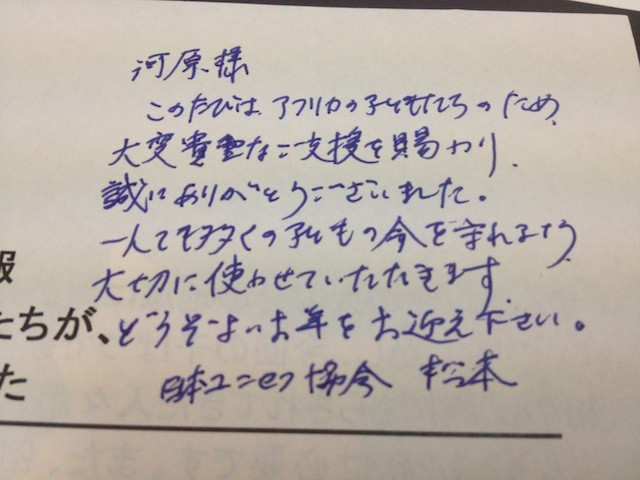 河原様
このたびは アフリカの子どもたちのため、
大変貴重なご支援を賜わり、
誠にありがとうございました。
一人でも多くの子どもの今を守れるよう
大切に使わせていただきます。
どうぞよいお年をお迎え下さい。
日本ユニセフ協会 松本
報
たちが、
た